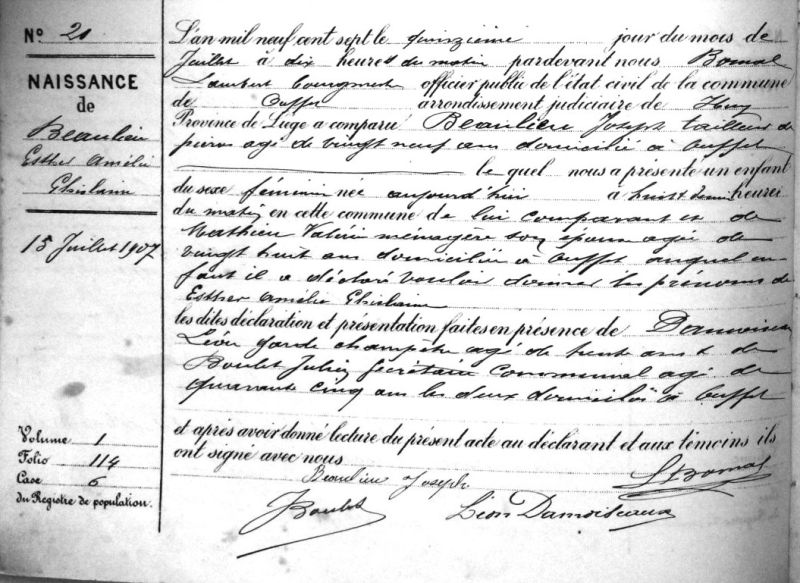 N° 21
NAISSANCE
de
Beaulieu
Esther Amélie
Ghislaine
15 Juillet 1907
Volume 1
Folio 114
Case 6
du Registre de population.
L'an mil neuf cent sept le quinzième jour du mois de
Juillet à dix heures du matin pardevant nous Bomal
Lambert bourgmestre officier public de l'état civil de la commune
de Ouffet arrondissement judiciaire de Huy
Province de Liége a comparu Beaulieu Joseph tailleur de
pierres agé de vingt neuf ans domicilié à Ouffet
le quel nous a présenté un enfant
du sexe féminin née aujourd'hui à huit heures
du matin en cette commune de lui comparant et de
Mathieu ménagère son épouse agée de
vingt huit ans domiciliée à Ouffet auquel en-
fant il a déclaré vouloir donner les prénoms de
Esther Amélie Ghislaine
les dites déclaration et présentation faites en présence de Damoiseau
Léon garde champêtre agé de trente ans et de
Boulet Julien Secrétaire Communal agé de
quarante cinq ans les deux domiciliés à Ouffet
et après avoir donné lecture du présent acte au déclarant et aux témoins ils
ont signé avec nous
Beaulieu Joseph
LBomal
Boulet
Léon Damoiseaux